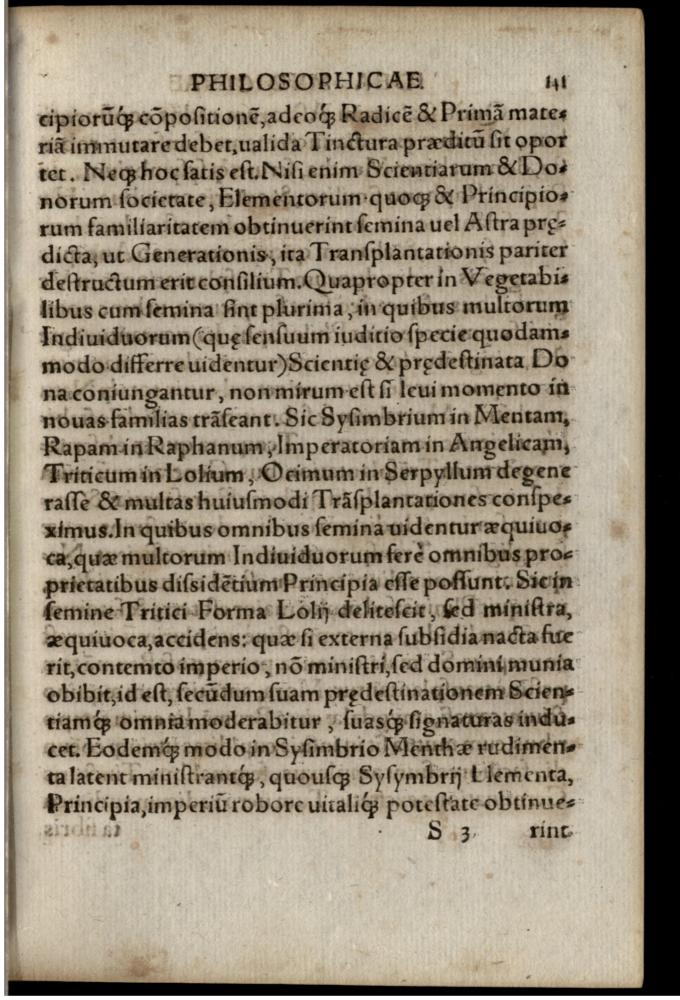 PHILOSOPHICAE 141
cipiorūq́ꝫ cōpoſitionē, adeoq́ꝫ Radicē & Primā mate⸗
riā immutare debet, ualida Tinctura præditū ſit opor
tet. Neqꝫ hoc ſatis eſt. Niſi enim Scientiarum & Do⸗
norum ſocietate, Elementorum quoqꝫ & Principio⸗
rum familiaritatem obtinuerint ſemina uel Aſtra prę⸗
dicta, ut Generationis, ita Tranſplantationis pariter
deſtructum erit conſilium. Quapropter in Vegetabi⸗
libus cum ſemina ſint plurima, in quibus multorum
Indiuiduorum (quę ſenſuum iuditio ſpecie quodam⸗
modo differre uidentur) Scientię & prędeſtinata Do
na coniungantur, non mirum eſt ſi leui momento in
nouas familias trāſeant. Sic Syſimbrium in Mentam,
Rapam in Raphanum, Imperatoriam in Angelicam,
Triticum in Lolium, Ocimum in Serpyllum degene
raſſe & multas huiuſmodi Trāſplantationes conſpe⸗
ximus. In quibus omnibus ſemina uidentur æquiuo⸗
ca, quæ multorum Indiuiduorum ferè omnibus pro⸗
prietatibus diſsidētium Principia eſſe poſſunt. Sic in
ſemine Tritici Forma Lolij deliteſcit, ſed miniſtra,
æquiuoca, accidens: quæ ſi externa ſubſidia nacta fue
rit, contemto imperio, nō miniſtri, ſed domini munia
obibit, id eſt, ſecūdum ſuam prędeſtinationem Scien⸗
tiamq́ꝫ omnia moderabitur, ſuasq́ꝫ ſignaturas indu⸗
cet. Eodemq́ꝫ modo in Syſimbrio Menthæ rudimen⸗
ta latent miniſtrantq́ꝫ, quouſqꝫ Syſymbrij Elementa,
Principia, imperiū robore uitaliq́ꝫ poteſtate obtinue⸗
S 3 rint.